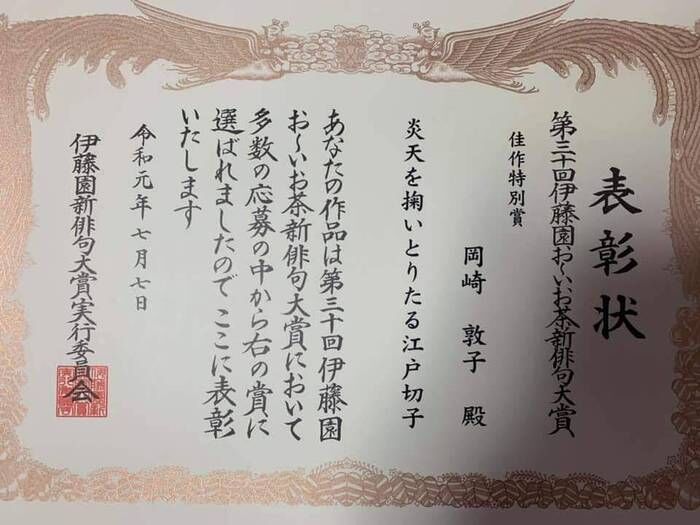 表彰状
第三十回伊藤園お〜いお茶新俳句大賞
佳作特別賞
岡崎 敦子 殿
炎天を掬いとりたる江戸切子
あなたの作品は第三十回伊藤園
お〜いお茶新俳句大賞において
多数の応募の中から右の賞に
選ばれましたので ここに表彰
いたします
令和元年七月七日
伊藤園新俳句大賞実行委員会